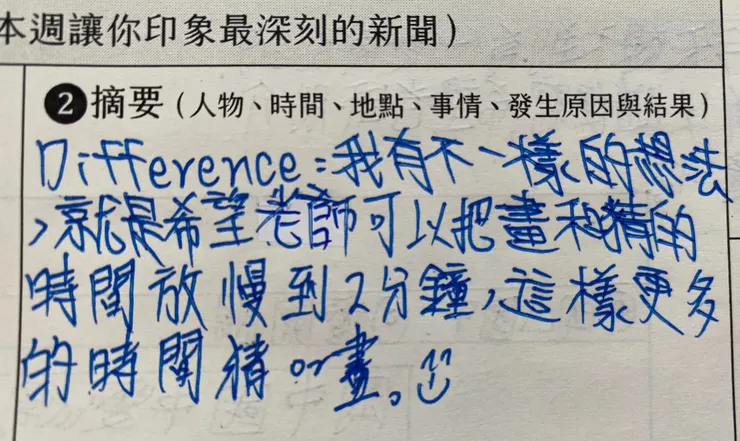 本週讓你印象最深刻的新聞）
❷摘要（人物、時間、地點、事情、發生原因與結果）
Difference：我有不一樣的想法
，就是希望老師可以把畫和猜的
時間放慢到2分鐘，這樣更多
的時間猜or畫。